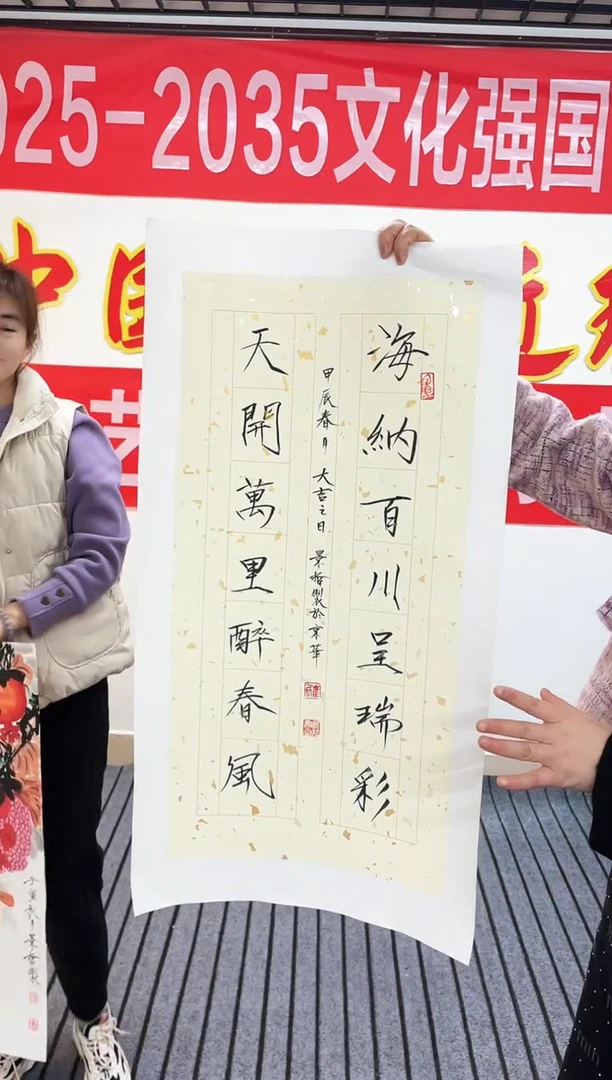 025-2035文化强国
中国
艺
海納百川呈瑞彩
甲辰春月 大吉之日 景梅製於京華
天開萬里醉春風